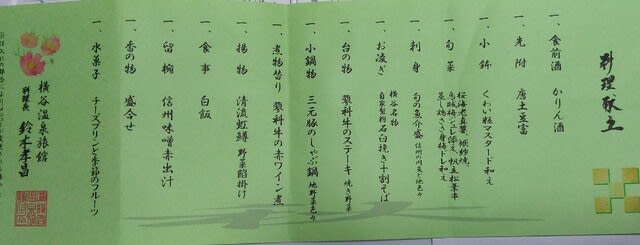 料理献立
一、食前酒 かりん酒
一、先附 唐土豆富
一、小鉢 くわい粒マスタード和え
一、旬菜 桜海老真薯、椒紗焼、
鳥賊梅ジュレ添え、帆立松葉串
蒸し鶏ささ身梅ドレ和え
一、刺身 旬の魚介盛 信州の川魚と地色々
一、お凌ぎ 横谷名物
自家製粉石臼挽き十割そば
一、台の物 蓼科牛のステーキ 焼き野菜
一、小鍋物 三元豚のしゃぶ鍋 地野菜色々
一、煮物替り 蓼科牛の赤ワイン煮
一、揚物 清流虹鱒 野菜餡掛け
一、食事 白飯
一、留椀 信州味噌赤出汁
一、香の物 盛合せ
一、水菓子 チーズプリンと季節のフルーツ
横谷温泉旅館
料理長 鈴木孝昌